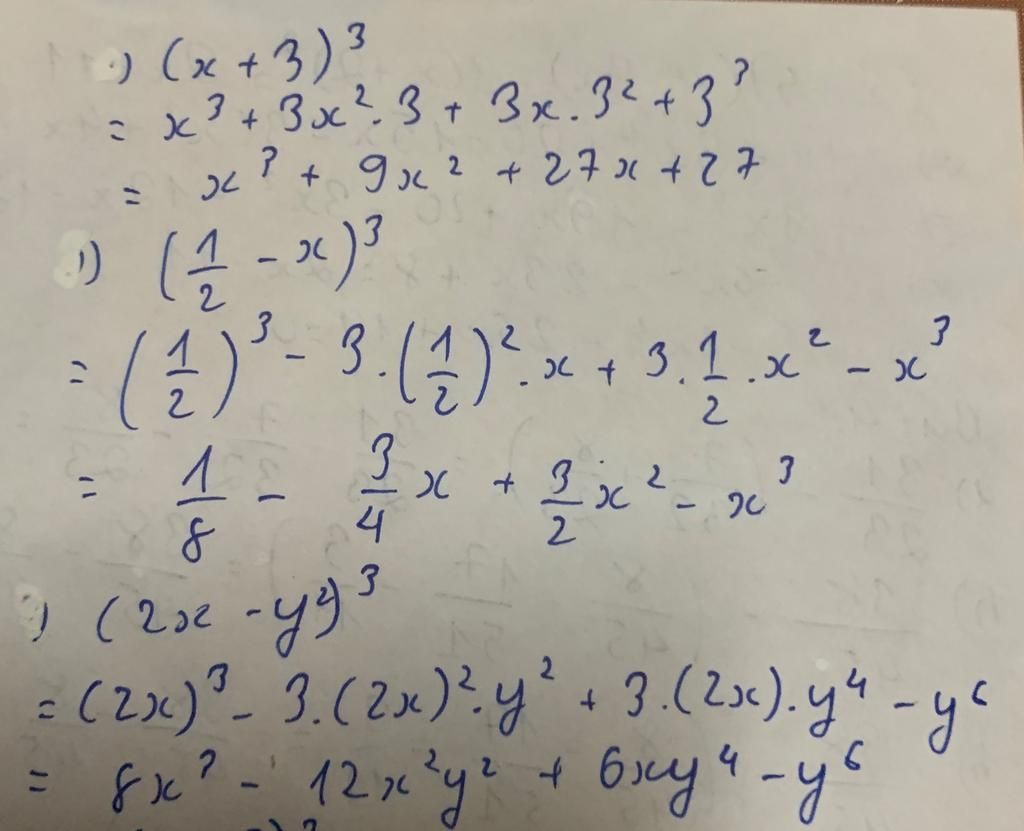 ) (x + 3)³
= x³ + 3x².3 + 3x.3² + 3³
= x³ + 9x² + 27x + 27
) (1/2 - x)³
= (1/2)³ - 3.(1/2)².x + 3.1/2.x² - x³
= 1/8 - 3/4x + 3/2x² - x³
) (2x - y²)³
= (2x)³ - 3.(2x)².y² + 3.(2x).y⁴ - y⁶
= 8x³ - 12x²y² + 6xy⁴ - y⁶